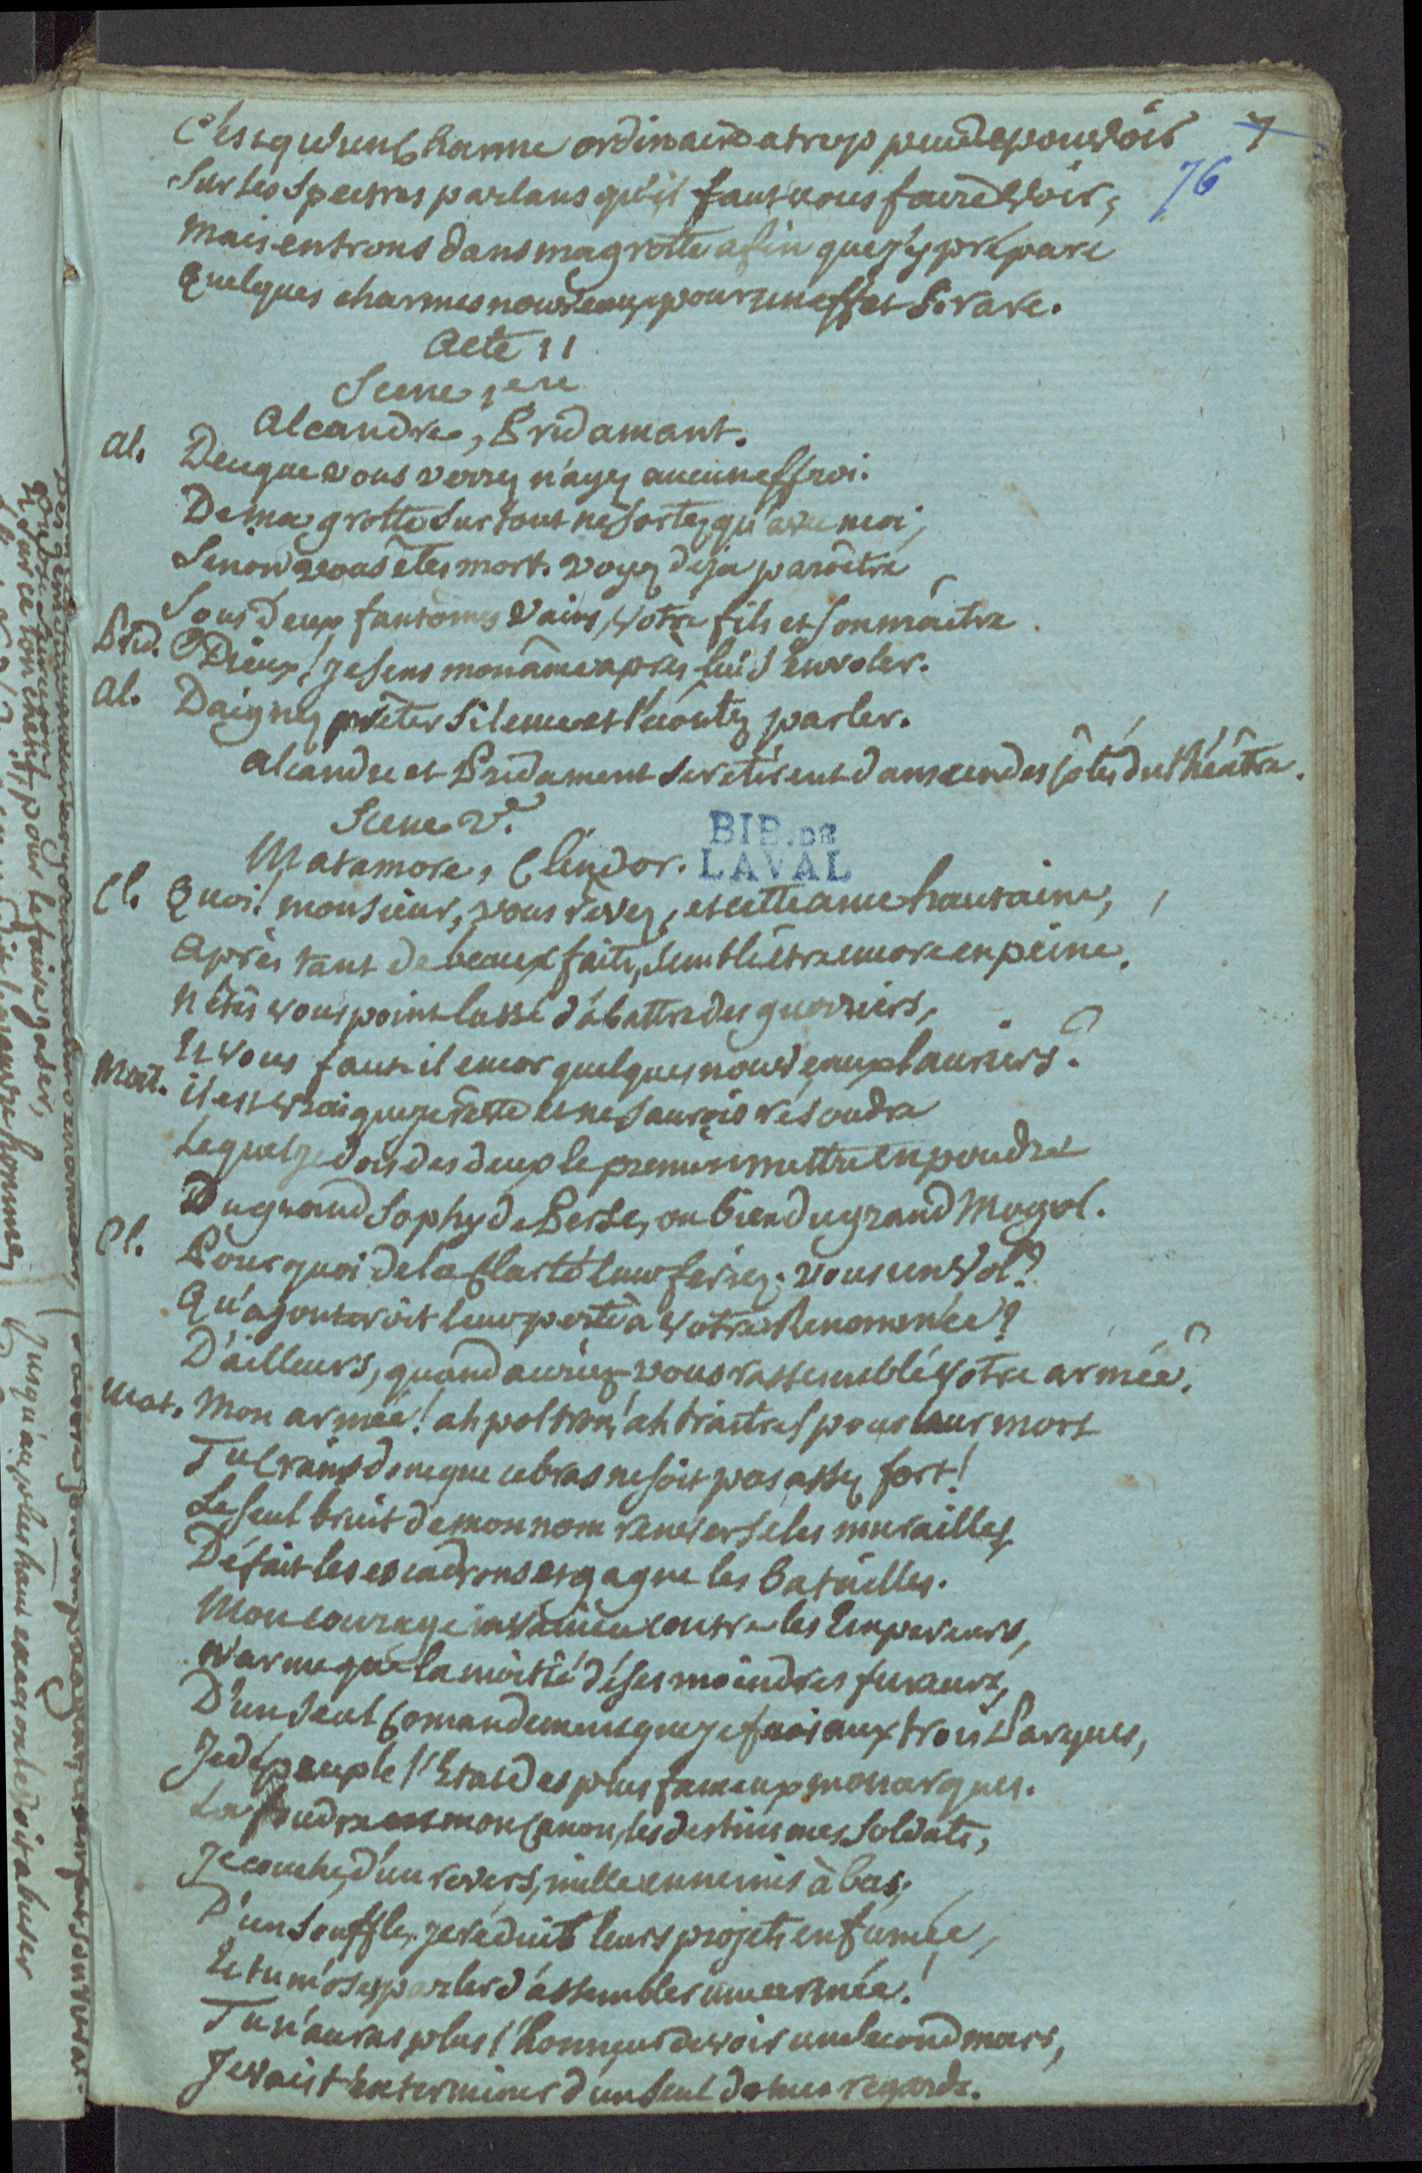 7
76
C'est qu'un Charme ordinaire a trop peu de pouvoir
Sur les Spectres parlans qu'il faut vous faire voir;
Mais entrons dans ma grotte afin que j'y prépare
Quelques charmes nouveaux pour un effet Si rare.
Acte II
Scene 1ere
Alcandre, Bridamant.
Al. De ce que vous verrez n'ayez aucun effroi.
De ma grotte Sur tout ne Sortez qu'avec moi,
Sinon vous êtes mort. Voyez déja paroître
Sous Deux fantomes Vains, votre fils et Son maître.
Brid. O Dieux! Je sens mon âme après lui S'envoler.
Al. Daignez prêter Silence et l'écoutez parler.
Alcandre et Bridamant Se retirent dans un des côtés du théâtre.
Scene 2e.
BIB. DE LAVAL
Matamore, Clindor.
Cl. Quoi! monsieur, vous rêvez, et cette ame hautaine,
Après tant de beaux faits, Semble être encore en peine.
N'êtes vous point lassé d'abattre des guerriers,
Et vous faut-il encor quelques nouveaux lauriers?
Mat. il est vrai que je rêve et ne Saurois résoudre
Lequel je dois des deux le premier mettre en poudre
Du grand Sophy de Perse, ou bien du grand Mogol.
Cl. Pourquoi de la Clarté leur feriez-vous un vol?
Qu'ajouteroit leur perte à votre Renommée?
D'ailleurs, quand auriez-vous rassemblé votre armée?
Mat. Mon armée! ah poltron! ah traitre! pour leur mort
Tu Crains donc que ce bras ne soit pas assez fort!
Le Seul bruit de mon nom renverse les murailles,
Défait les escadrons et gagne les batailles.
Mon courage invaincu contre les Empereurs,
N'arme que la moitié de ses moindres fureurs,
D'un Seul Comandement que je fais aux trois Parques,
Je dépeuple l'Etat des plus fameux monarques.
La foudre est mon Canon, les destins mes Soldats,
Je couche, d'un revers, mille ennemis à bas,
D'un Souffle, je réduits leurs projets en fumée,
Et tu m'oses parler d'assembler une armée!
Tu n'auras plus l'honneur de voir un second mars,
Je vais t'exterminer d'un Seul de mes regards.
Sur ce ton chéri, pour le faire jaser,
Jusqu'au plus haut excès on le doit abuser